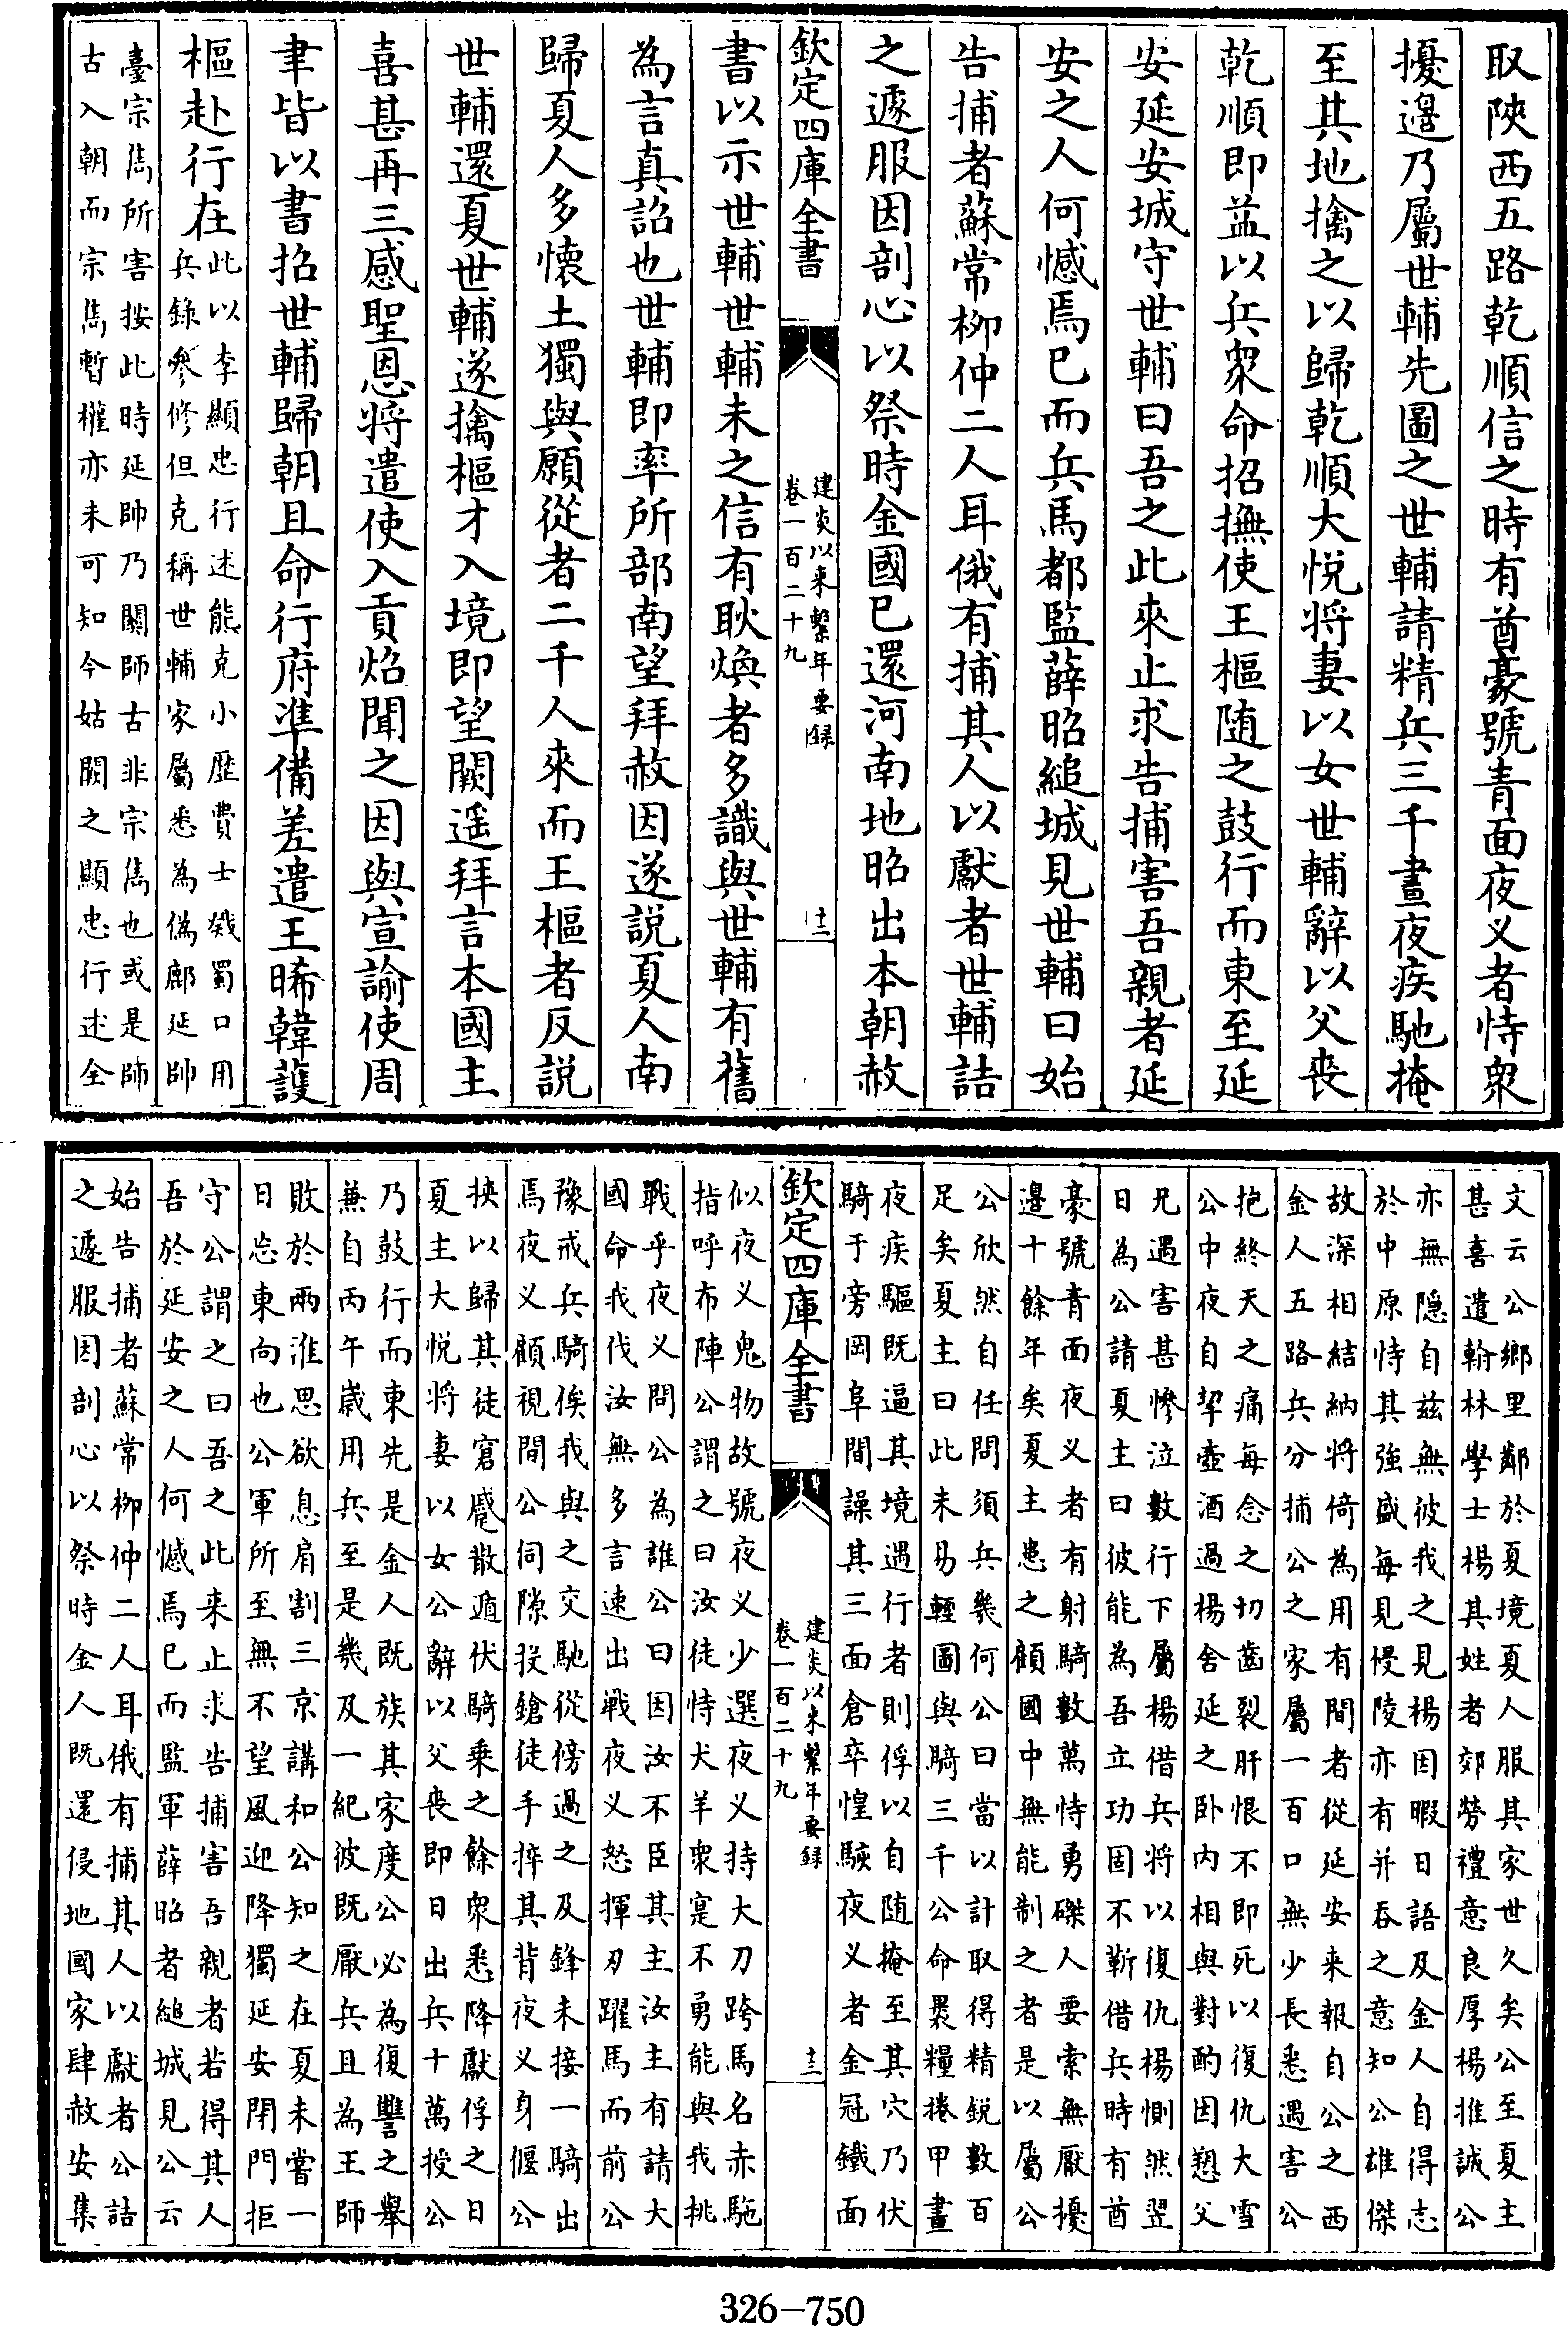 取陝西五路乾順信之時有酋豪號青面夜义者恃衆
擾邊乃屬世輔先圖之世輔請精兵三千晝夜疾馳掩
至其地擒之以歸乾順大悦將妻以女世輔辭以父喪
乾順即益以兵衆命招撫使王樞随之鼓行而東至延
安延安城守世輔曰吾之此來止求告捕害吾親者延
安之人何憾焉已而兵馬都監薛昭縋城見世輔曰始
告捕者蘇常柳仲二人耳俄有捕其人以獻者世輔詰
之遽服因剖心以祭時金國已還河南地昭出本朝赦
欽定四庫全書
建炎以來繫年要録
卷一百二十九
十二
書以示世輔世輔未之信有耿煥者多識與世輔有舊
為言真詔也世輔即率所部南望拜赦因遂説夏人南
歸夏人多懷土獨與願從者二千人來而王樞者反説
世輔還夏世輔遂擒樞才入境即望闕遥拜言本國主
喜甚再三感聖恩将遣使入貢焰聞之因與宣諭使周
聿皆以書招世輔歸朝且命行府準備差遣王晞韓護
樞赴行在
此以李顯忠行述熊克小歷費士戣蜀口用
兵錄叅修但克稱世輔家屬悉為偽鄜延帥
臺宗雋所害按此時延帥乃關師古非宗雋也或是師
古入朝而宗雋暫權亦未可知今姑闕之顯忠行述全
文云公鄉里鄰於夏境夏人服其家世久矣公至夏主
甚喜遣翰林學士楊其姓者郊勞禮意良厚楊推誠公
亦無隠自兹無彼我之見楊因暇日語及金人自得志
於中原恃其強盛每見侵陵亦有并吞之意知公雄傑
故深相結納将倚為用有間者從延安来報自公之西
金人五路兵分捕公之家屬一百口無少長悉遇害公
抱終天之痛每念之切齒裂肝恨不即死以復仇大雪
公中夜自挈壺酒過楊舍延之卧内相與對酌因愬父
兄遇害甚慘泣數行下屬楊借兵将以復仇楊惻然翌
日為公請夏主曰彼能為吾立功固不靳借兵時有酋
豪號青面夜义者有射騎數萬恃勇磔人要索無厭擾
邊十餘年矣夏主患之顧國中無能制之者是以屬公
公欣然自任問須兵幾何公曰當以計取得精銳數百
足矣夏主曰此未易輕圖與騎三千公命褁糧捲甲晝
夜疾驅既逼其境遇行者則俘以自随掩至其穴乃伏
騎于旁岡阜間譟其三面倉卒惶駭夜义者金冠鐵面
欽定四庫全書
建炎以来繫年要録
卷一百二十九
十三
似夜义鬼物故號夜义少選夜义持大刀跨馬名赤駞
指呼布陣公謂之曰汝徒恃犬羊衆寔不勇能與我挑
戰乎夜义問公為誰公曰因汝不臣其主汝主有請大
國命我伐汝無多言速出戰夜义怒揮刃躍馬而前公
豫戒兵騎俟我與之交馳從傍過之及鋒未接一騎出
焉夜义顧視間公伺隙投鎗徒手捽其背夜义身偃公
挾以歸其徒窘蹙散遁伏騎乘之餘衆悉降獻俘之日
夏主大悦将妻以女公辭以父喪即日出兵十萬授公
乃鼓行而東先是金人既族其家度公必為復讐之舉
兼自丙午歳用兵至是幾及一紀彼既厭兵且為王師
敗於兩淮思欲息肩割三京講和公知之在夏未嘗一
日忘東向也公軍所至無不望風迎降獨延安閉門拒
守公謂之曰吾之此来止求告捕害吾親者若得其人
吾於延安之人何憾焉已而監軍薛昭者縋城見公云
始告捕者蘇常柳仲二人耳俄有捕其人以獻者公詰
之遽服因剖心以祭時金人既還侵地國家肆赦安集
326-750